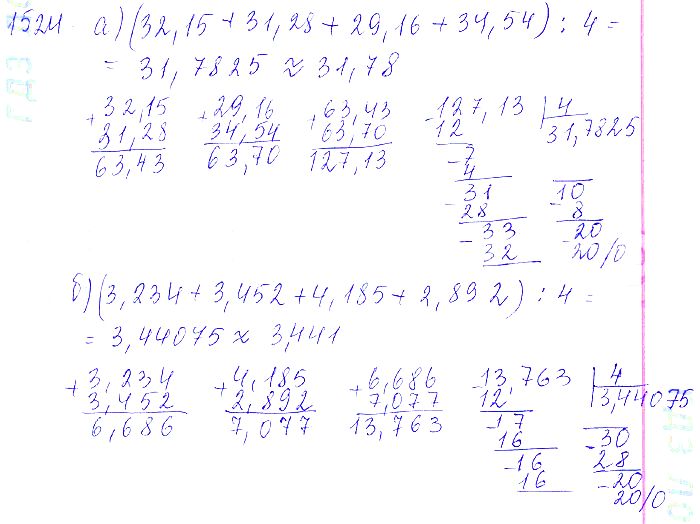 1524 а) (32,15 + 31,28 + 29,16 + 34,54) : 4 =
= 31,7825 ≈ 31,78
+ 32,15
31,28
63,43
+ 29,16
34,54
63,70
+ 63,43
63,70
127,13
- 127,13 | 4
12 31,7825
- 7
4
- 31
28
- 33
32
10
- 8
- 20
20/0
б) (3,234 + 3,452 + 4,185 + 2,892) : 4 =
= 3,44075 ≈ 3,441
+ 3,234
3,452
6,686
+ 4,185
2,892
7,077
+ 6,686
7,077
13,763
- 13,763 | 4
12 3,44075
- 17
16
- 16
16
- 30
28
- 20
20/0